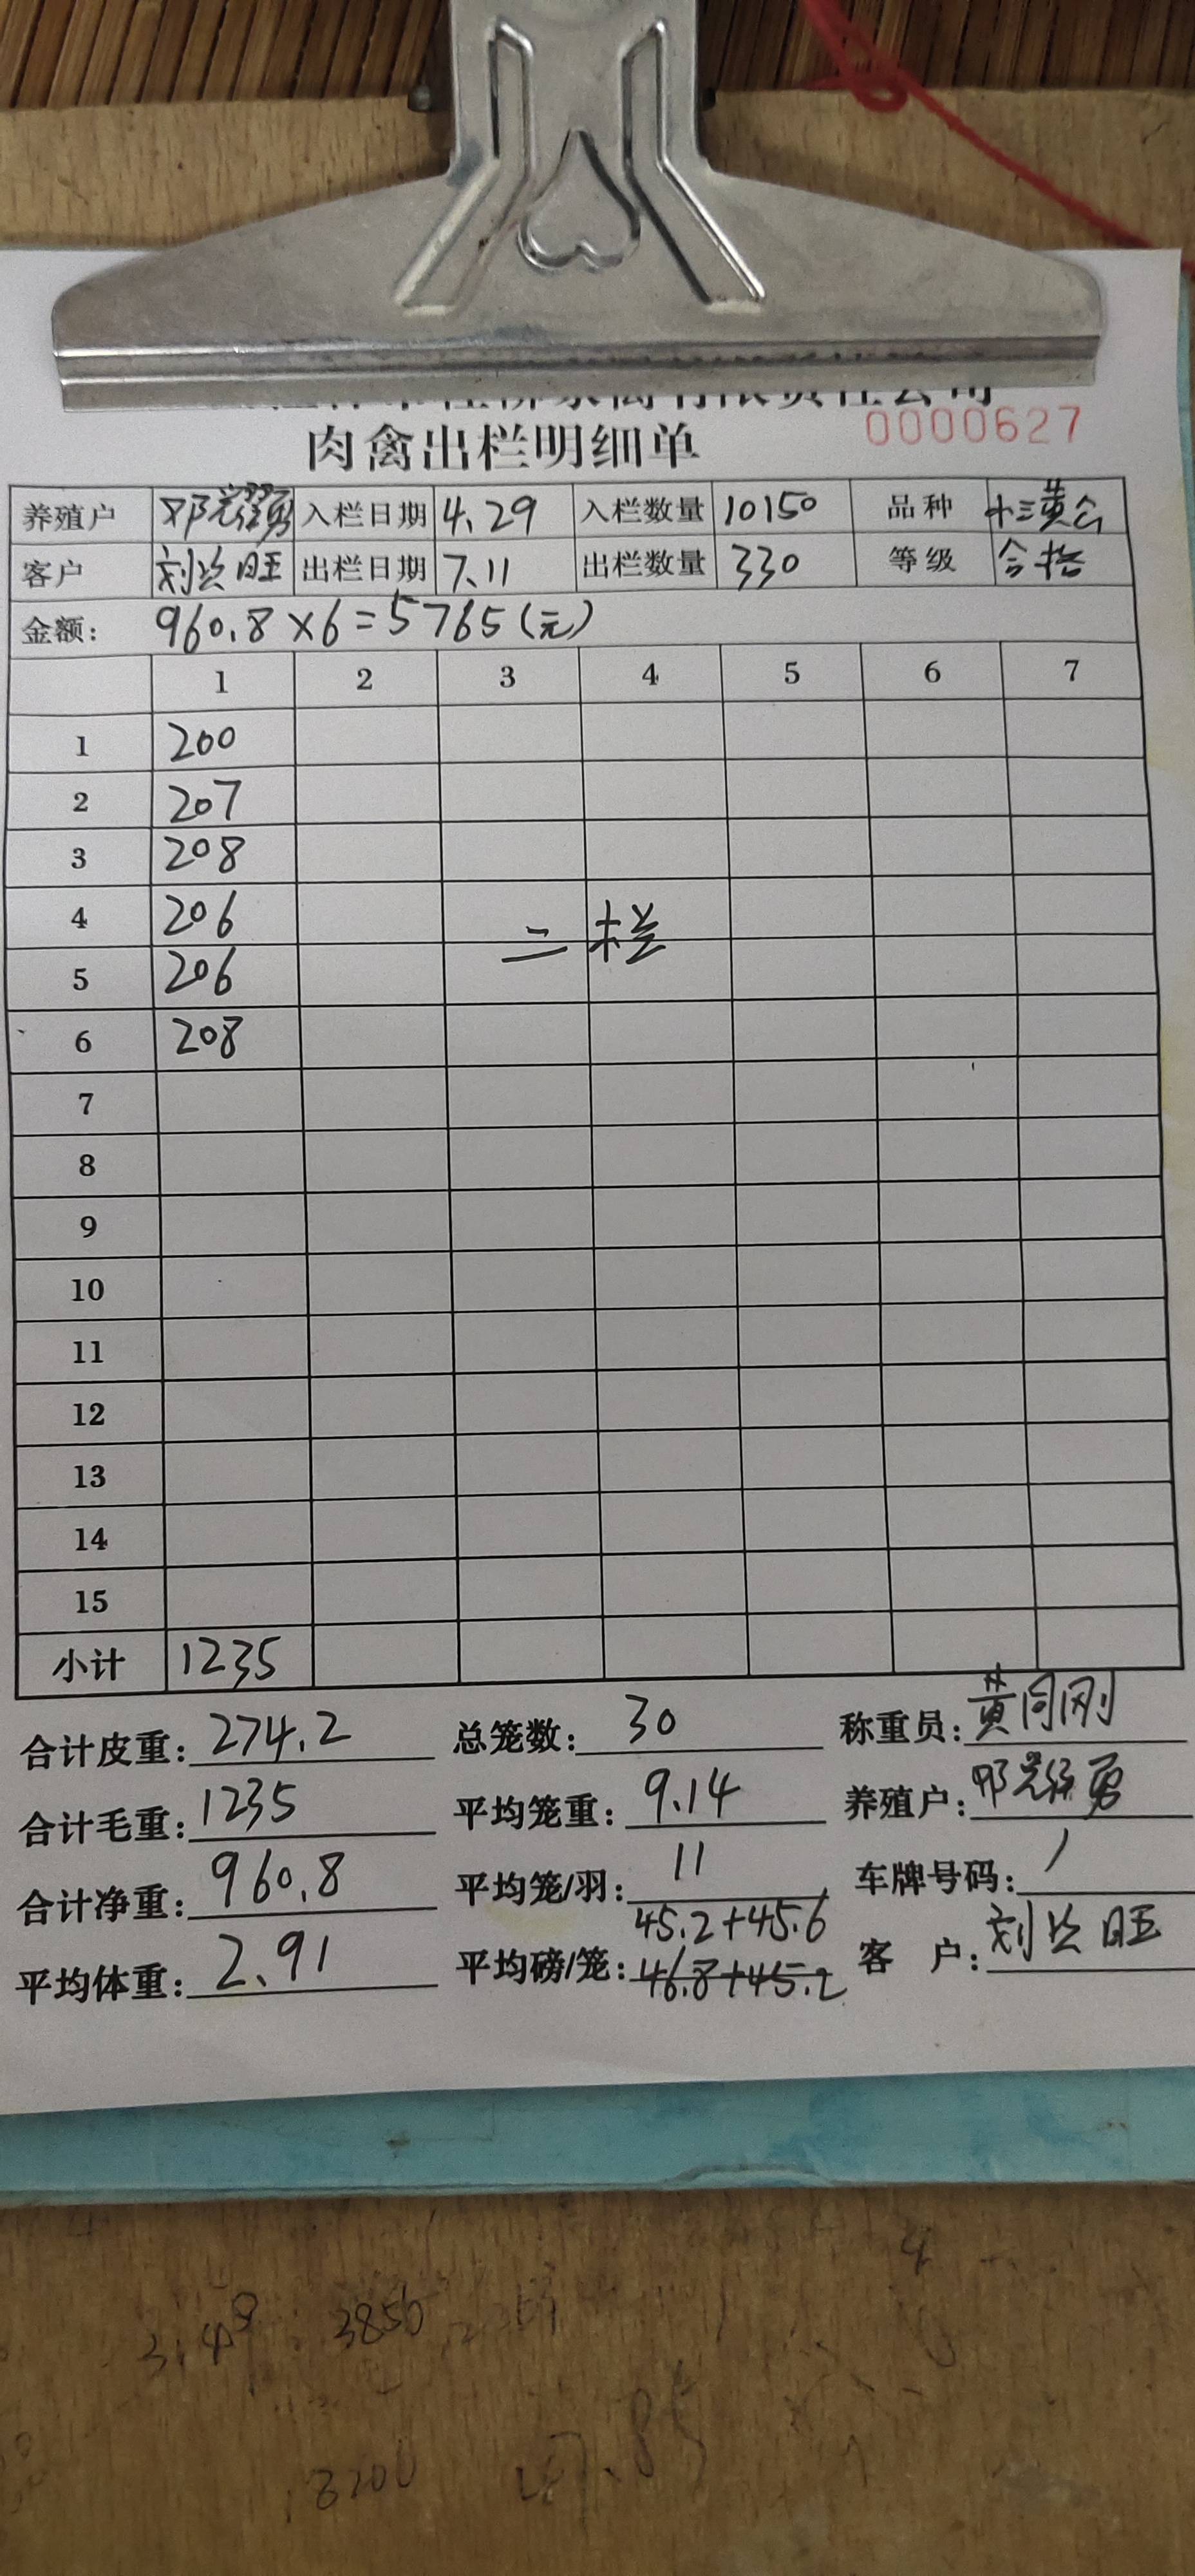 有限责任公司
0000627
肉禽出栏明细单
养殖户 邓光耀勇 入栏日期 4.29 入栏数量 10150 品种 土三黄公
客户 刘兴旺 出栏日期 7.11 出栏数量 330 等级 合格
金额: 960.8×6=5765(元)
1 2 3 4 5 6 7
1 200
2 207
3 208
4 206
二栏
5 206
6 208
7
8
9
10
11
12
13
14
15
小计 1235
合计皮重: 274.2 总笼数: 30 称重员: 黄同刚
合计毛重: 1235 平均笼重: 9.14 养殖户:
合计净重: 960.8 平均笼/羽: 11 车牌号码: /
45.2+45.6
平均体重: 2.91 平均磅/笼: 46.8+45.2 客 户: 刘兴旺
3850
3200